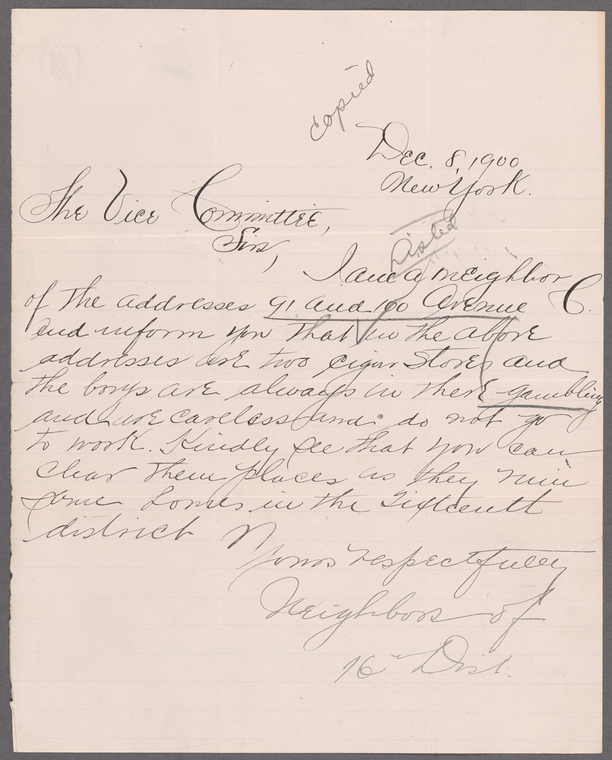 copied
Dec. 8, 1900
New York.
The Vice Committee,
Sirs,
Listed
I am a neighbor
of the addresses 91 and 100 Avenue C.
and inform you that in the above
addresses are two cigar stores and
the boys are always in there gambling
and are careless and do not go
to work. Kindly see that you can
clear them places as they ruin
some homes in the Sixteenth
district
Yours respectfully
Neighbors of
16" Dist.